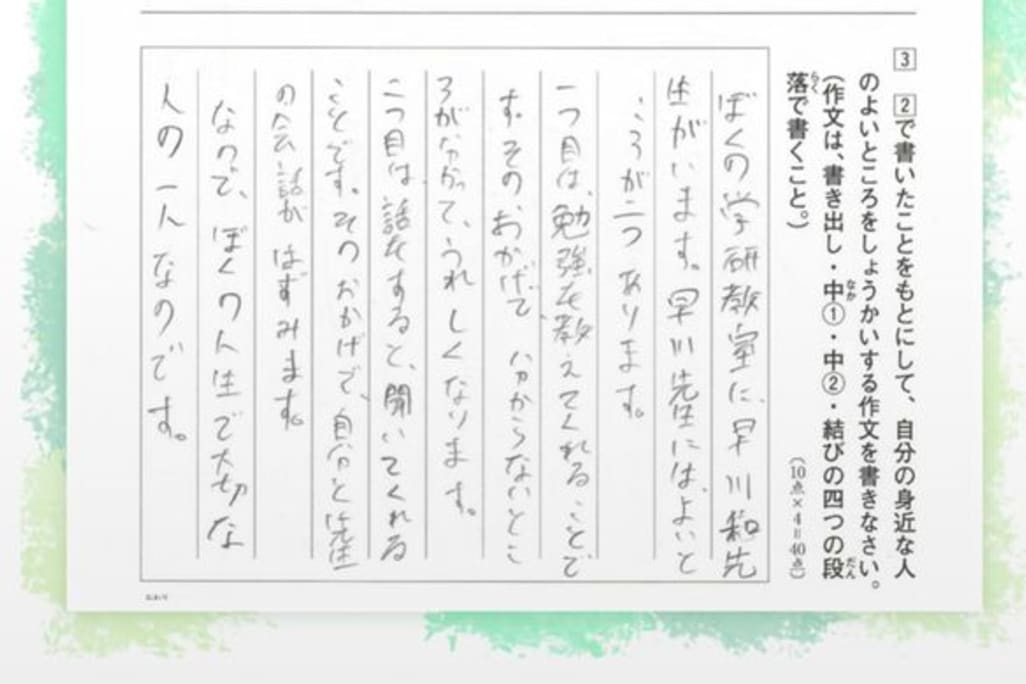 3 2で書いたことをもとにして、自分の身近な人
のよいところをしょうかいする作文を書きなさい。
(作文は、書き出し・中①・中②・結びの四つの段
落で書くこと。)
(10点×4=40点)
ぼくの学研教室に、早川和先
生がいます。早川先生には、よいと
ころが二つあります。
一つ目は、勉強を教えてくれることで
す。そのおかげで、分からないとこ
ろが分かって、うれしくなります。
二つ目は、話をすると、聞いてくれる
ことです。そのおかげで、自分と先生
の会話がはずみます。
なので、ぼくの人生で大切な
人の一人なのです。